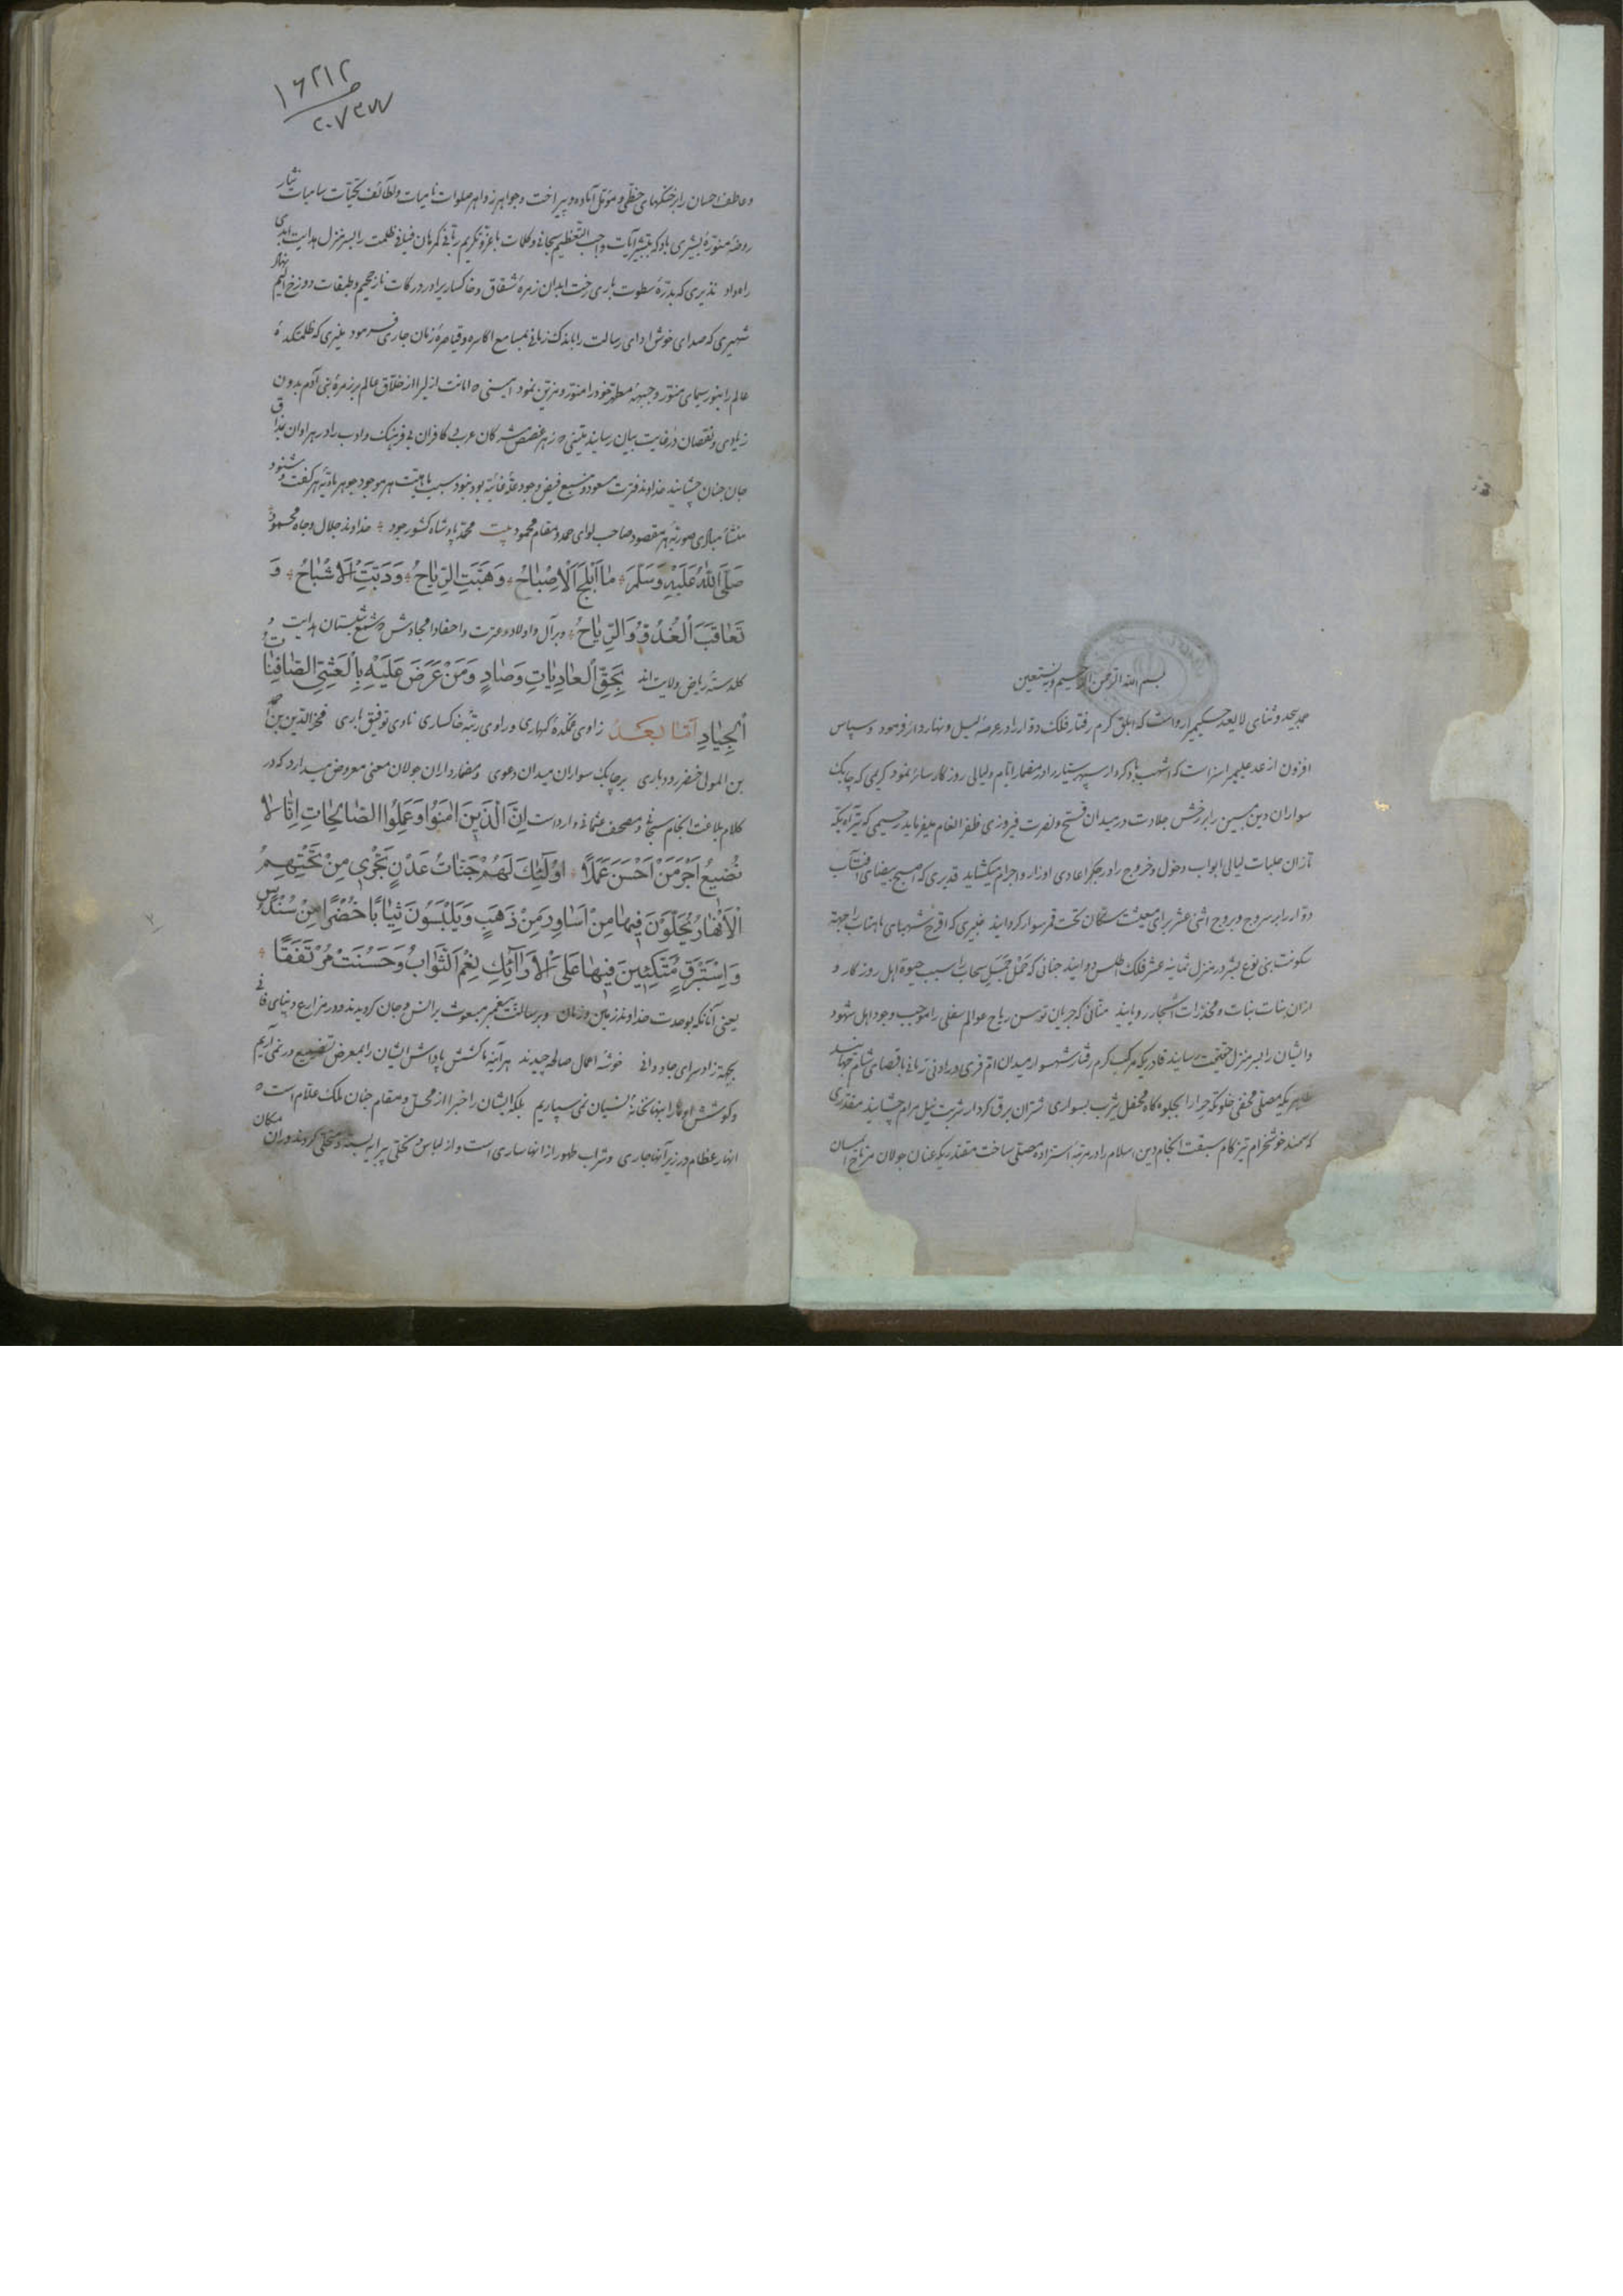 بسم الله الرحمن الرحیم وبه نستعین
حمد بیحد و ثنای لا یعد حکیمیرا رواست که ابلق کرم رفتار فلک دوار را در عرصهٔ لیل و نهار دائر فرمود و سپاس
افزون از عد علیمیرا سزاست که اشهب باد کردار سپهر سیار را در مضمار ایام و لیالی روزکار سائر نمود کریمی که چابک
سواران دین مبین را بر رخش جلادت در میدان فتح و نصرت فیروزی ظفر انعام میفرماید رحیمی که
تازان حلبات لیالی ابواب دخول و خروج را در اعادی اوزار و اجرام میکشاید قدیری که بیضای آفتاب
دوار را بر سروج بروج اثنی عشر برای معیشت ساکان تحت قمر سوار کردانید خبیری که اقرح شهبای ماهتاب را جهة
سکونت بنی نوع بشر در منزل ثمانیه عشر فلک اطلس دوانید که سحاب را سبب حیوة اهل روزکار و
ازان بنات نبات و مخدرات اشجار رویانید منانی که جریان توسن ریاح عوالم سفلی را موجب وجود اهل شهود
وایشان را بسر منزل حقیقت رسانید قادریکه مرکب کرم رفتار شهسوار میدان ام قری را در ادنی زمانی باقصای شام جهانید
محفل یثرب بسواری شتران برق کردار شربت نیل مرام چشانید مقتدری
که سمند خوشخرام تیز کام سبقت انجام دین اسلام را در مرتبه مصلی ساخت مقتدریکه عنان جولان
۱۶۲۱۲
۲۰۷۳۷۷
و عاطف احسان را بر خنکهای حظی و مؤمل آماده و پیراخت و جواهر زواهر صلوات نامیات و لطائف تحیات سامیات نثار
روضهٔ منورهٔ بشیری باد که بتبشیر آیات واجب التعظیم سبحانی و کلمات با عز و تکریم ربانی کمرهان فیافی ظلمت را بسر منزل هدایت ابدی
راه داد نذیری که بدرّهٔ سطوت باری رخت ابدان زمرهٔ شقاق و خاکسار را در درکات نار جحیم و طبقات دوزخ الیم نهاد
شهیری که صدای خوش ادای رسالت را باندک زمانی بمسامع اکاسره و قیاصرهٔ زمان جاری فرمود منیری که ظلمتکدهٔ
عالم را بنور سیمای منور و جبههٔ مطهر خود را منور و مزین نمود امینی که امانت از خلاق عالم بر زمرهٔ بنی آدم بدون
زیادی و نقصان در غایت بیان رسانید متینی که زهر غصص مشرکان عربی کافران بی فرهنک و ادب را در هر اوان بمذاق
جان جنان چشانید خداوند فترت مسعود و منبع فیض وجود علهٔ غائیهٔ بود نبود سبب ماهیت هر موجود جوهر مادیهٔ هر کفت و شنود
منشأ مبادی صوریهٔ هر مقصود صاحب لوای حمد و مقام محمود بیت محمد پادشاه کشور جود خداوند جلال و جاه محمود
صَلَّى اللهُ عَلَيْهِ وَسَلَّمَ مَا اَبْلَجَ الْاِصْبَاحُ وَهَبَّتِ الرِّيَاحُ وَدَبَّتِ الْاَشْبَاحُ وَ
تَعَاقَبَ الْغُدُوُّ وَالرِّيَاحُ وبرآل و اولاد و عترت و احفاد امجادش که شمع شبستان هدایت و
کلدستهٔ ریاض ولایت اند بِحَقِّ الْعَادِيَاتِ وَصَادٍ وَمَنْ عَرَضَ عَلَيْهِ بِالْعَشِيِّ الصَّافِنَاتُ
الْجِيَادِ اَمَّا بَعْدُ زاوی غمکدهٔ کنهکاری و راوی رتبهٔ خاکساری نادی توفیق باری فخرالدین بن احمد
بن المولی خضر رودباری بر چابک سواران میدان دعوی و مضمارداران جولان معنی معروض میدارد که در
کلام بلاغت انجام سبحانی و مصحف عثمانی وارد است اِنَّ الَّذِينَ اٰمَنُوا وَعَمِلُوا الصَّالِحَاتِ اِنَّا لَا
نُضِيعُ اَجْرَ مَنْ اَحْسَنَ عَمَلًا اُولٰئِكَ لَهُمْ جَنَّاتُ عَدْنٍ تَجْرِي مِنْ تَحْتِهِمُ
الْاَنْهَارُ يُحَلَّوْنَ فِيهَا مِنْ اَسَاوِرَ مِنْ ذَهَبٍ وَيَلْبَسُونَ ثِيَابًا خُضْرًا مِنْ سُنْدُسٍ
وَاِسْتَبْرَقٍ مُتَّكِئِينَ فِيهَا عَلَى الْاَرَائِكِ نِعْمَ الثَّوَابُ وَحَسُنَتْ مُرْتَفَقًا
یعنی آنانکه بوحدت خداوند زمین و زمان و برسالت پیغمبر مبعوث بر انس و جان کرویدند و در مزارع دنیای فانی
بجهة زاد سرای جاودانی خوشهٔ اعمال صالحه چیدند هر آینه ما کشش پاداش ایشان را بمعرض تضییع در نمی آریم
و کوشش اوفا را بنهانخانهٔ نسیان نمی سپاریم بلکه ایشان را خبرا از محل و مقام جنان ملک علام است که
انهار عظام در زیر آنها جاری و شراب طهور از انها ساری است و از لباس و تحلی پیرایه بسته و متحلی کردند و دران مکان
۲